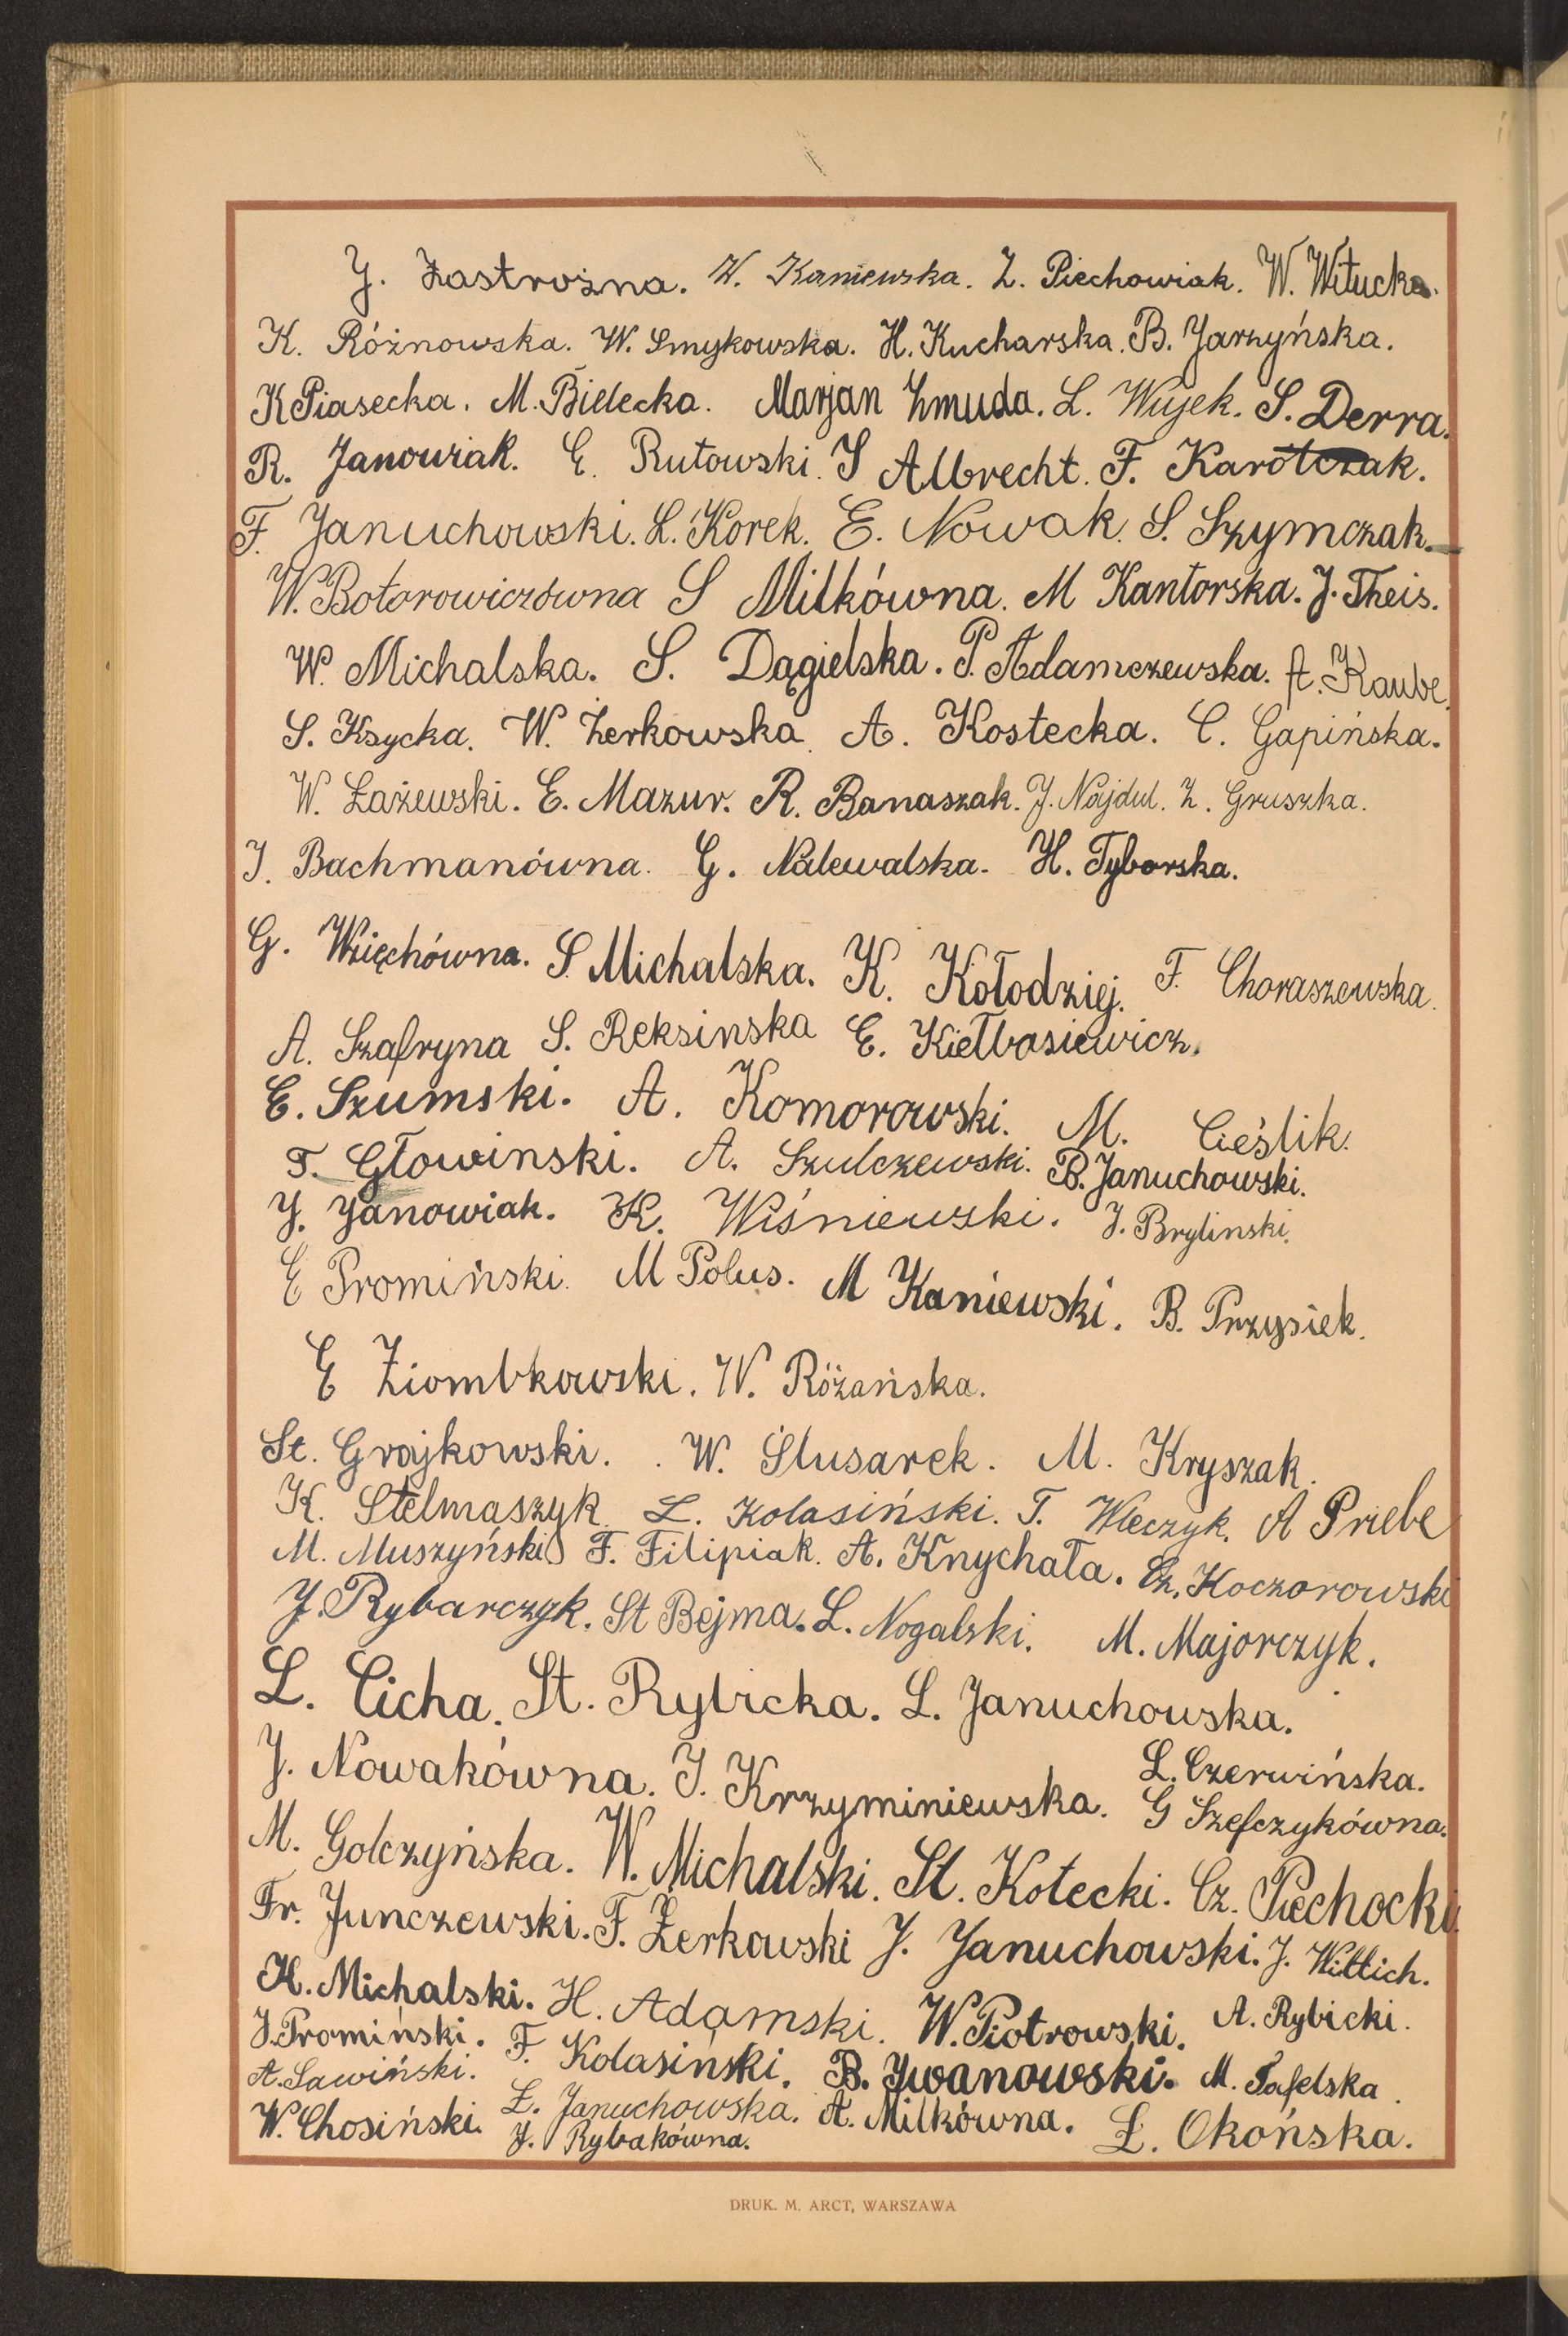 J. Zastrożna. W. Kaniewska. Z. Piechowiak. W. Witucka.
K. Różnowska. W. Smykowska. H. Kucharska. B. Jarzyńska.
K Piasecka. M. Bielecka. Marjan Żmuda. L. Wujek. S. Derra.
R. Janowiak. E. Rutowski. S Albrecht. F. Karolczak.
F. Januchowski. L. Korek. E. Nowak. S. Szymczak.
W. Botorowiczówna S Miłkówna. M Kantorska. J. Theis.
W. Michalska. S. Dągielska. P. Adamczewska. A. Kaube.
S. Ksycka. W. Żerkowska. A. Kostecka. C. Gapińska.
W. Łażewski. E. Mazur. R. Banaszak. J. Najdul. Z. Gruszka.
J. Bachmanówna. G. Nalewalska. H. Tyborska.
G. Więchówna. S. Michalska. K. Kołodziej. F. Choraszewska.
A. Szafryna S. Reksinska E. Kiełbasiewicz.
E. Szumski. A. Komorowski. M. Cieślik.
T. Głowinski. A. Szulczewski. B. Januchowski.
J. Janowiak. K. Wiśniewski. J. Brylinski.
E Promiński. M Polus. M Kaniewski. B. Przysiek.
E Ziombkowski. W. Różańska.
St. Grajkowski. W. Ślusarek. M. Kryszak.
K. Stelmaszyk. L. Kolasiński. T. Wleczyk. A Priebe
M. Muszyński F. Filipiak. A. Knychała. Cz. Koczorowski
J. Rybarczyk. St Bejma. L. Nogalski. M. Majorczyk.
L. Cicha. St. Rybicka. L. Januchowska.
J. Nowakówna. J. Krzyminiewska. L. Czerwińska.
G Szefczykówna.
M. Golczyńska. W. Michalski. St. Kotecki. Cz. Piechocki.
Fr. Junczewski. F. Żerkowski J. Januchowski. J. Wittich.
K. Michalski. H. Adamski. W. Piotrowski. A. Rybicki.
J. Promiński. F. Kolasiński. B. Jwanowski. M. Tafelska.
A. Sawiński. Ł. Januchowska. A. Miłkówna. Ł. Okońska.
W. Chosiński. J. Rybakówna.
DRUK. M. ARCT, WARSZAWA